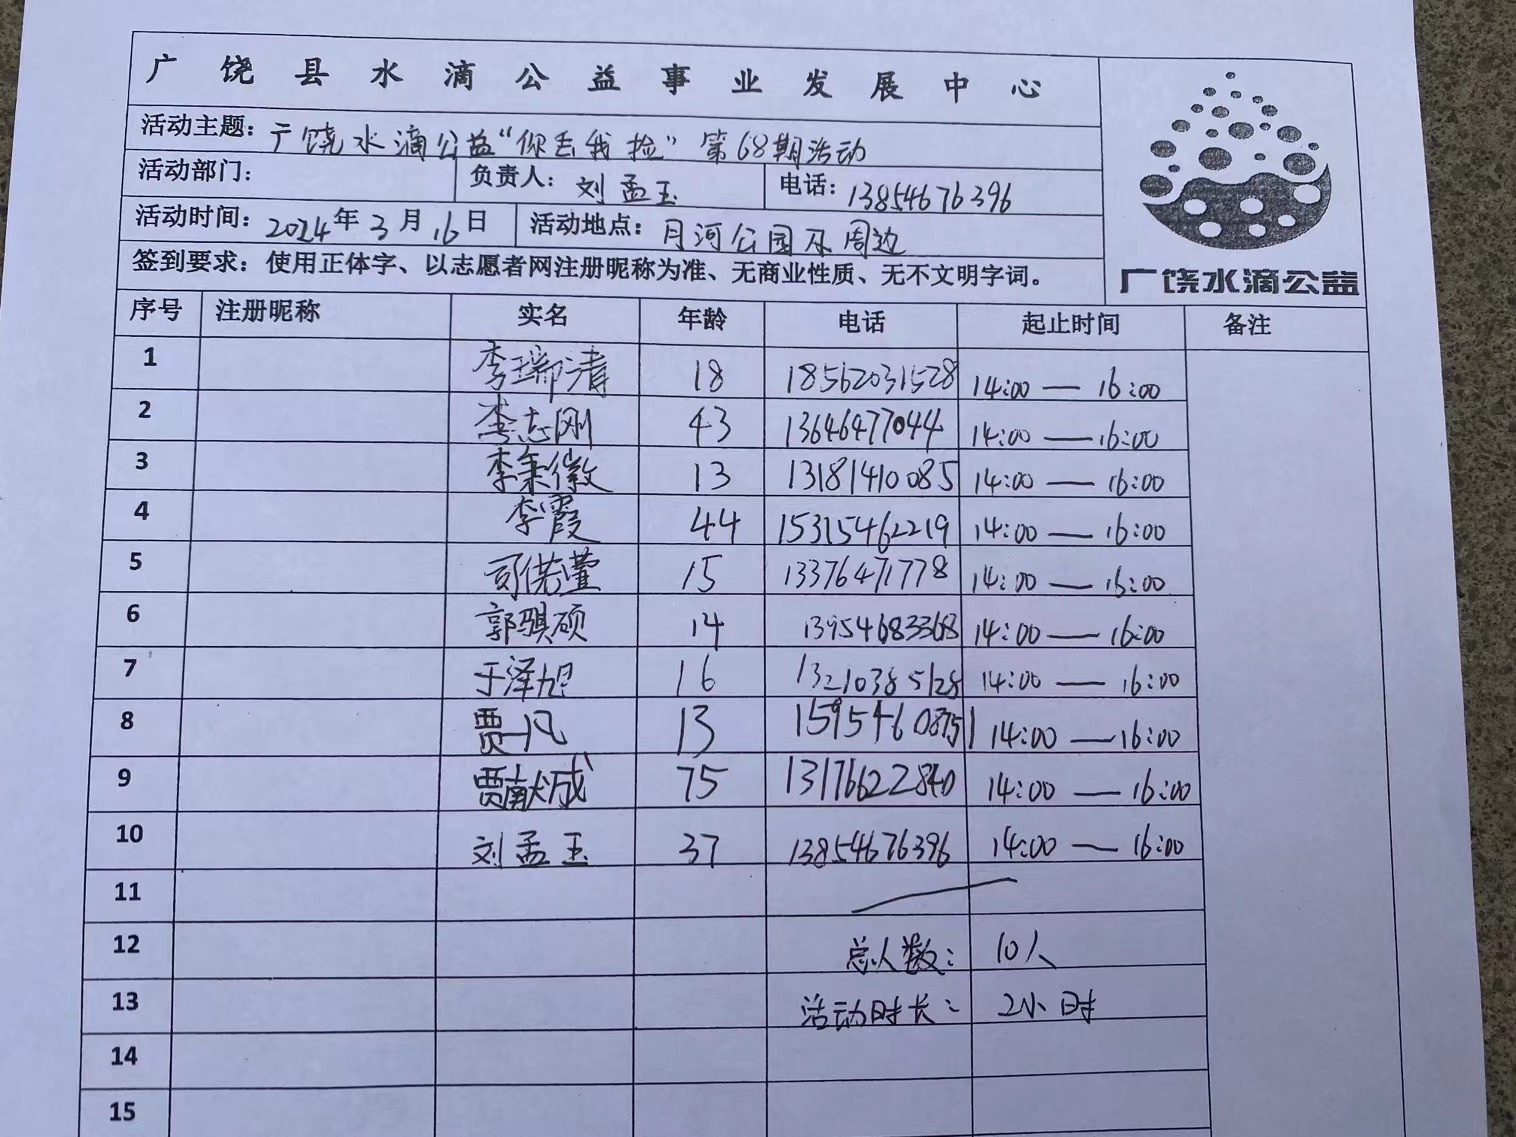 广饶县水滴公益事业发展中心
活动主题：广饶水滴公益“你丢我捡”第68期活动
活动部门： 负责人：刘孟玉 电话：13854676396
活动时间：2024年3月16日 活动地点：月河公园及周边
签到要求：使用正体字、以志愿者网注册昵称为准、无商业性质、无不文明字词。
广饶水滴公益
序号 注册昵称 实名 年龄 电话 起止时间 备注
1 李瑞清 18 18562031528 14:00—16:00
2 李志刚 43 13646477044 14:00—16:00
3 李秉徽 13 13181410085 14:00—16:00
4 李霞 44 15315462219 14:00—16:00
5 司偌萱 15 13376471778 14:00—16:00
6 郭骐硕 14 13954683368 14:00—16:00
7 于泽旭 16 13210385128 14:00—16:00
8 贾一凡 13 15954608751 14:00—16:00
9 贾献成 75 13176622840 14:00—16:00
10 刘孟玉 37 13854676396 14:00—16:00
11
12 总人数： 10人
13 活动时长： 2小时
14
15